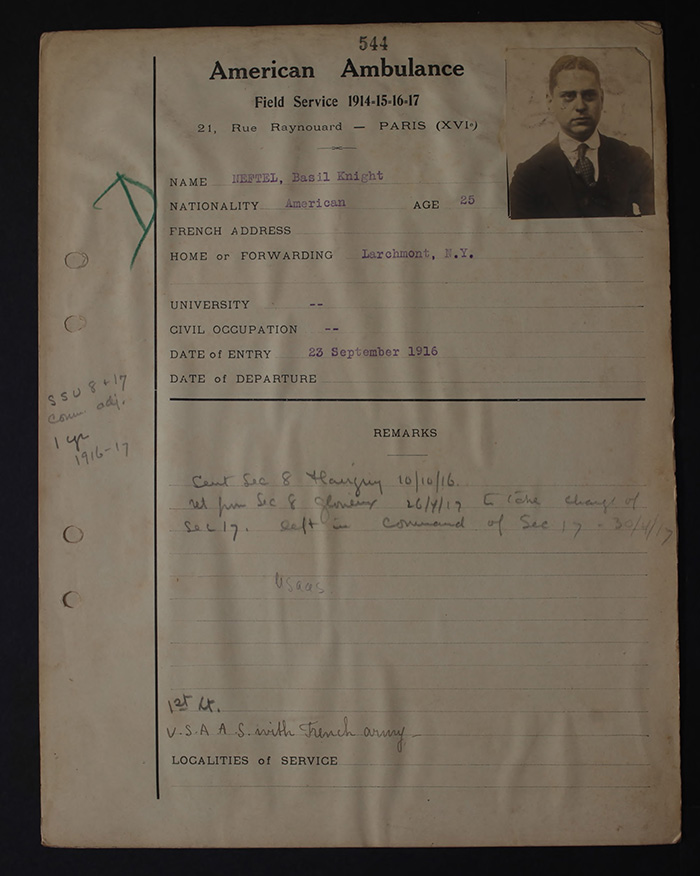 544
American Ambulance
Field Service 1914-15-16-17
21, Rue Raynouard — PARIS (XVIe)
NAME NEFTEL, Basil Knight
NATIONALITY American AGE 25
FRENCH ADDRESS
HOME or FORWARDING Larchmont, N.Y.
UNIVERSITY --
CIVIL OCCUPATION --
DATE of ENTRY 23 September 1916
DATE of DEPARTURE
SSU 8 + 17
Comm adj.
1 yr
1916-17
REMARKS
Sec 8 10/10/16.
Sec 8 26/4/17 to take charge of
Sec 17. left in command of Sec 17 - 30/4/17
USAAS
1st Lt.
U-S-A A S. with French army -
LOCALITIES of SERVICE